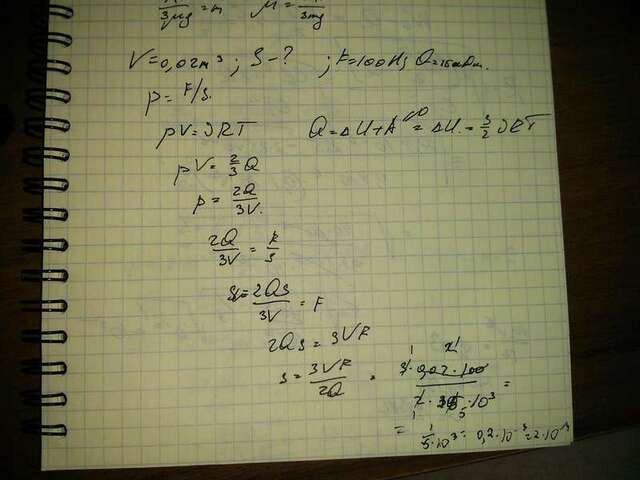 /3μg = m    μ = /3mg
V=0,02м³ ; S-? ; F=100H; Q=15кДж.
p= F/S.
pV=νRT    Q=ΔU+A⁼⁰=ΔU=3/2 νRT
pV=2/3 Q
p= 2Q/3V.
2Q/3V = F/S
2QS/3V = F
2QS=3VF
S= 3VF/2Q = 3·0,02·100/2·15·10³ =
= 1/5·10³ = 0,2·10⁻³=2·10⁻⁴